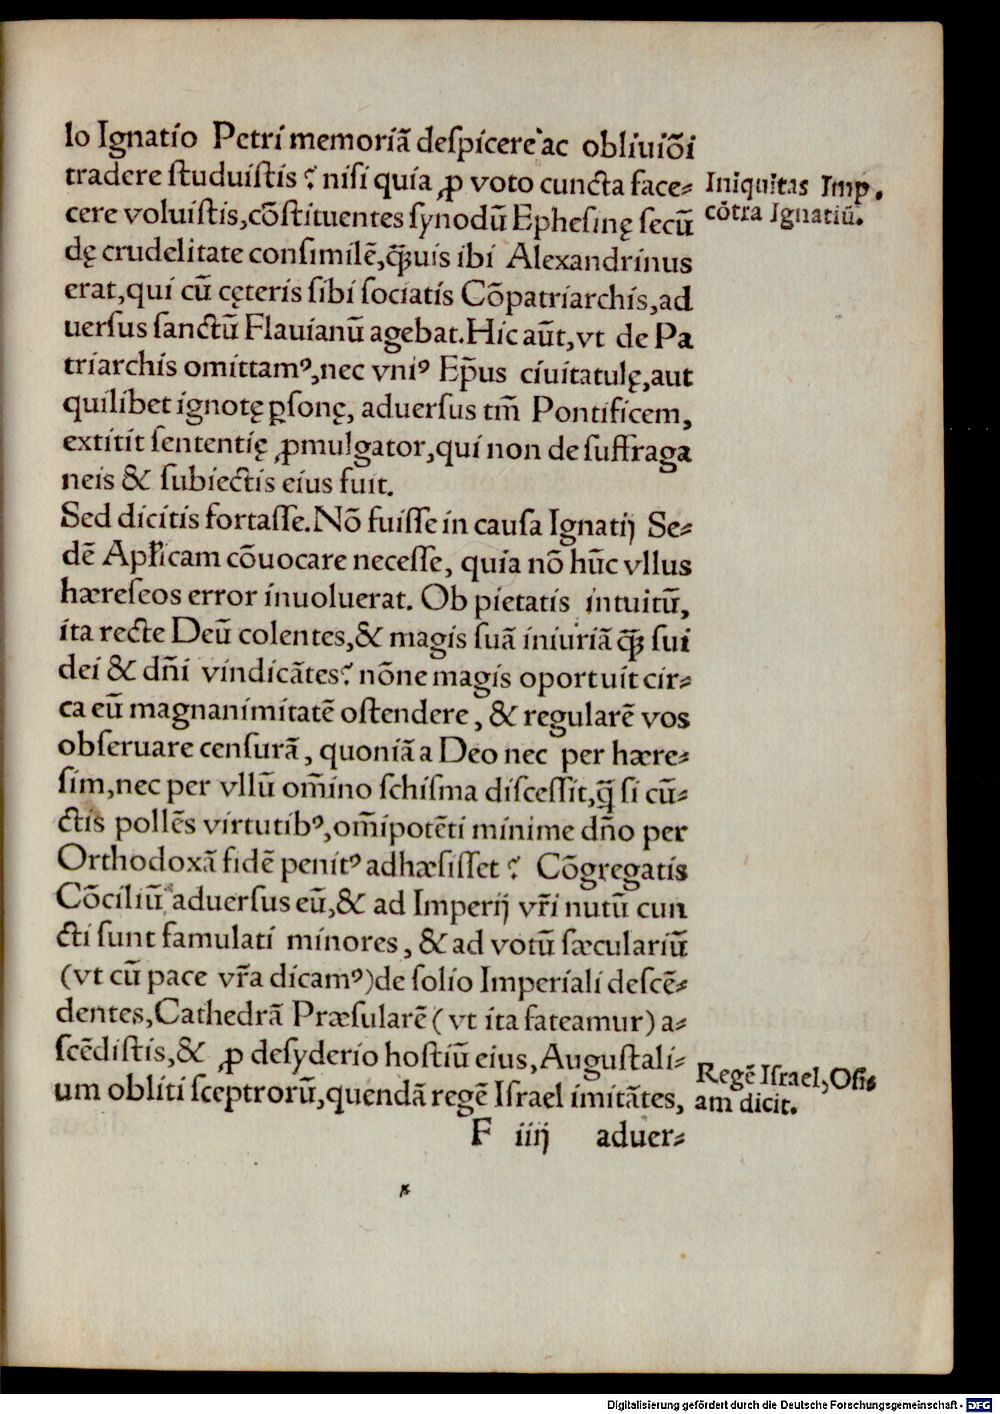 lo Ignatio Petri memoriā deſpicere ac obliuiōi
tradere ſtuduiſtis ? niſi quia ꝓ voto cuncta face⸗
cere voluiſtis,cōſtituentes ſynodū Epheſinę ſecū
dę crudelitate conſimilē,ꝙ̃uis ibi Alexandrinus
erat,qui cū cęteris ſibi ſociatis Cōpatriarchis,ad
uerſus ſanctū Flauianū agebat.Hic aūt,vt de Pa
triarchis omittamꝰ,nec vniꝰ Ep̄us ciuitatulę,aut
quilibet ignotę ꝑſonę, aduerſus tm̄ Pontificem,
extitit ſententię ꝓmulgator,qui non de ſuffraga
neis & ſubiectis eius fuit.
Sed dicitis fortaſſe.Nō fuiſſe in cauſa Ignatij Se⸗
dē Apłicam cōuocare neceſſe, quia nō hūc vllus
hæreſeos error inuoluerat. Ob pietatis intuitū,
ita recte Deū colentes,& magis ſuā iniuriā ꝙ̃ ſui
dei & dñi vindicātes? nōne magis oportuit cir⸗
ca eū magnanimitatē oſtendere, & regularē vos
obſeruare cenſurā, quoniā a Deo nec per hære⸗
ſim,nec per vllū om̄ino ſchiſma diſceſſit,q̄ ſi cū⸗
ctis pollēs virtutibꝰ,om̄ipotēti minime dño per
Orthodoxā fidē penitꝰ adhæſiſſet ? Cōgregatis
Cōciliū aduerſus eū,& ad Imperij vr̄i nutū cun
cti ſunt famulati minores, & ad votū ſæculariū
(vt cū pace vr̄a dicamꝰ)de ſolio Imperiali deſcē⸗
dentes,Cathedrā Præſularē ( vt ita fateamur) a⸗
ſcēdiſtis,& ꝓ deſyderio hoſtiū eius,Auguſtali⸗
um obliti ſceptrorū,quendā regē Iſrael imitātes,
F iiij aduer⸗
Iniquitas Imp.
cōtra Ignatiū.
Regē Iſrael, Oſi⸗
am dicit.
Digitalisierung gefördert durch die Deutsche Forschungsgemeinschaft - DFG